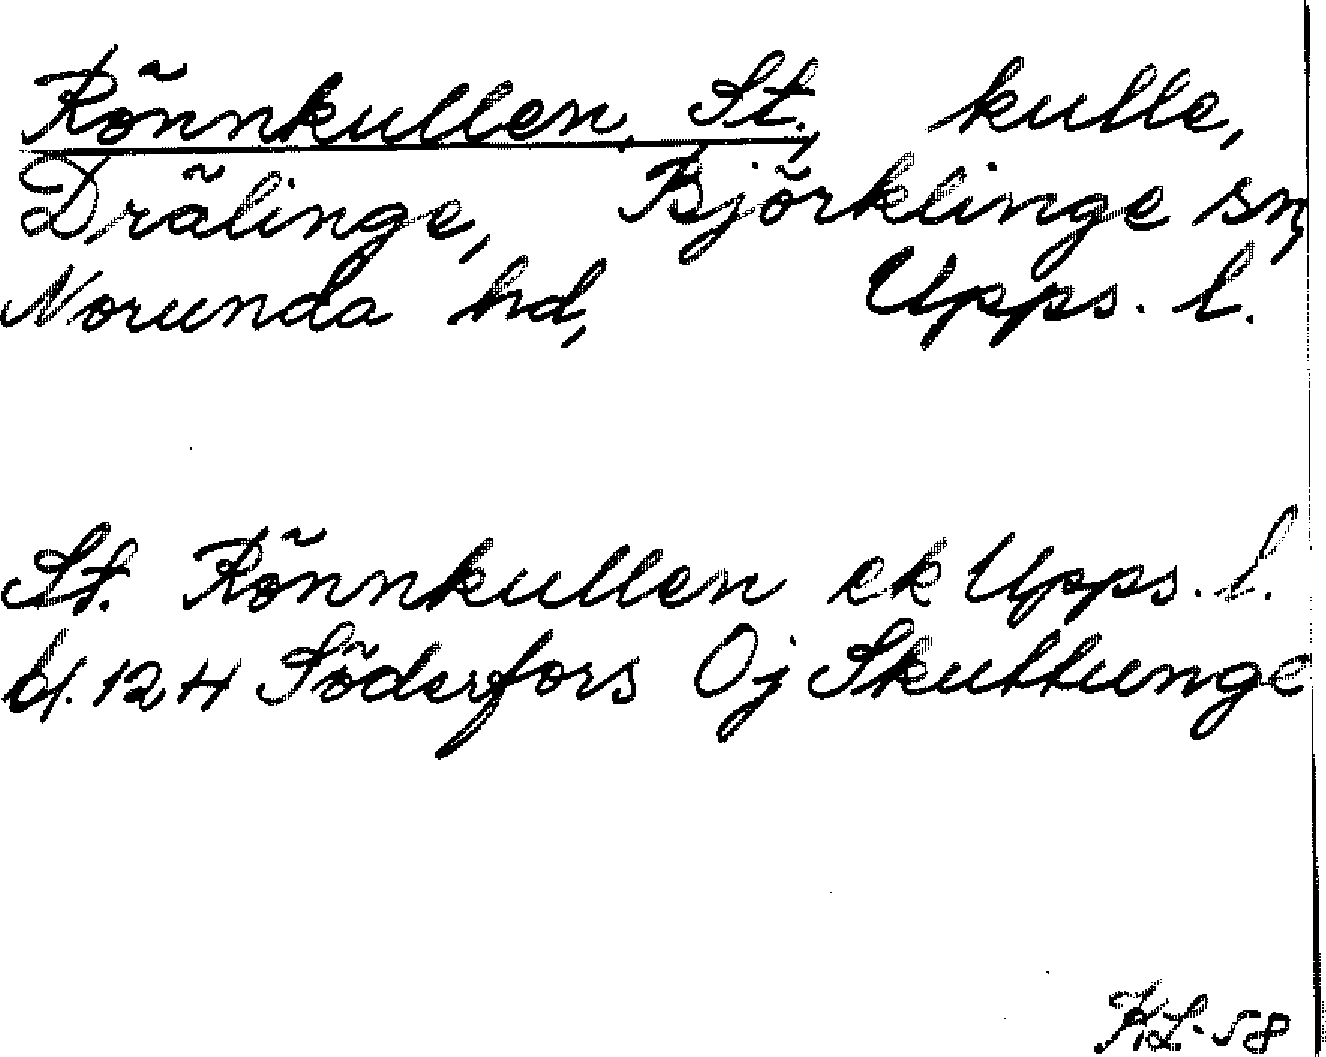 Rönnkullen, St., kulle,
Drälinge, Björklinge sn,
Norunda hd, Upps. l.
St. Rönnkullen ek Upps. l.
bl. 12 H Söderfors Oj Skuttunge
K.L. 58